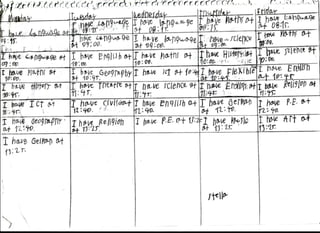 Monday Tuesday Wednesday Thursday Friday
I have Language at 08:15.
I have Language at 08:15.
I have Maths at 08:15.
I have Language at 08:15.
I have Language at 09:00.
I have Language at 09:00.
I have Language at 09:00.
I have science
I have Maths at
I have Maths at 10:00.
I have English at 10:00.
I have Maths at 10:00.
I have History at 10:00.
I have science at 10:00.
I have History at 10:45.
I have Geography at 10:45.
I have ICT at 10:45
I have Flexible at 10:45.
I have English at 10:45.
I have ICT at 11:45.
I have Theatre at 11:45.
I have science at 11:45.
I have English at 11:45.
I have Religion at 11:45.
I have Geography at 12:40.
I have Civics at 12:40.
I have English at 12:40.
I have German at 12:40.
I have P.E. at 12:40.
I have German at 13:25.
I have Religion at 13:25.
I have P.E. at 13:25
I have Music 13:25.
I have Art at 13:25.
stella